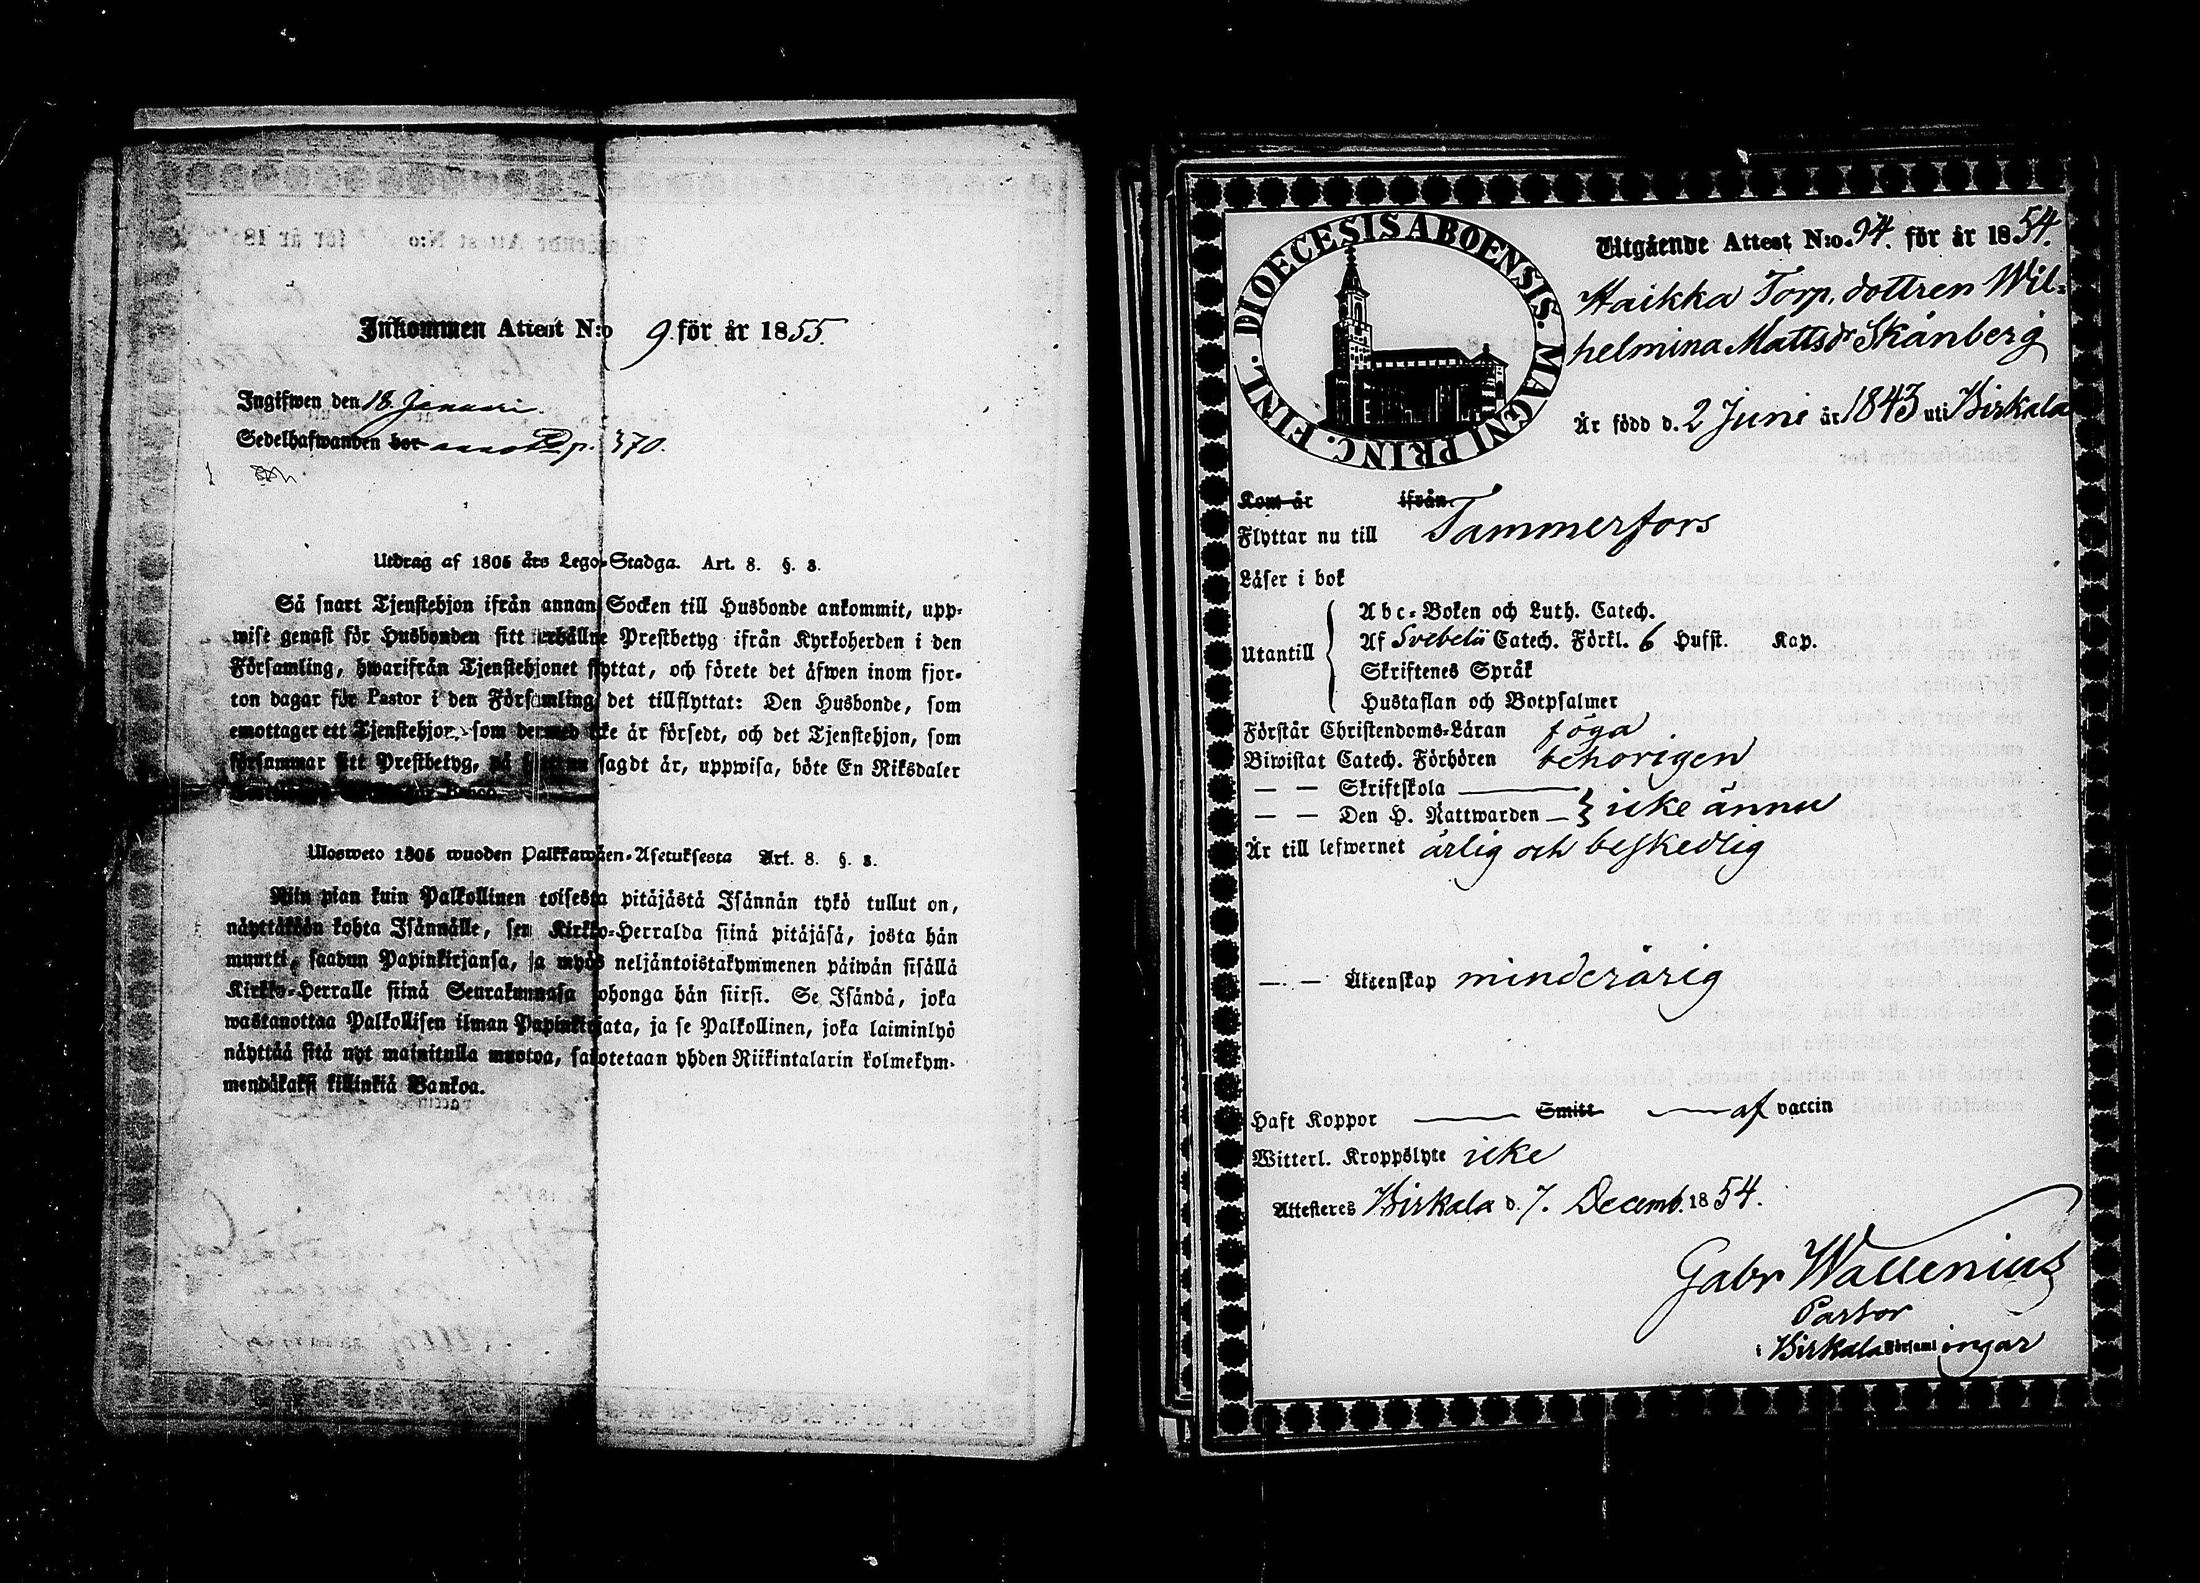 Inkommen Attest N:o 9 för år 1855.
Ingifwen den 18. Januari.
Sedelhafwanden bor p. 370.
Utdrag af 1805 års Lego-Stadga. Art. 8. §. 3.
Så snart Tjenstehjon ifrån annan Socken till Husbonde ankommit, upp-
wise genast för Husbonden sitt erhållne Prestbetyg ifrån Kyrkoherden i den
Församling, hwarifrån Tjenstehjonet flyttat, och förete det äfwen inom fjor-
ton dagar för Pastor i den Församling det tillflyttat: Den Husbonde, som
emottager ett Tjenstehjon, som dermed icke är försedt, och det Tjenstehjon, som
försummar sitt Prestbetyg, på sätt nu sagdt är, uppwisa, böte En Riksdaler
Ulosweto 1805 wuoden Palkkawäen-Asetuksesta Art. 8. §. 3.
Niin pian kuin Palkollinen toisesta pitäjästä Isännän tykö tullut on,
näyttäköön kohta Isännälle, sen Kirkko-Herralda siinä pitäjäsä, josta hän
muutti, saadun Papinkirjansa, ja myös neljäntoistakymmenen päiwän sisällä
Kirkko-Herralle siinä Seurakunnasa johonga hän siirsi. Se Isändä, joka
wastanottaa Palkollisen ilman Papinkirjata, ja se Palkollinen, joka laiminlyö
näyttää sitä nyt mainitulla muotoa, sakotetaan yhden Riikintalarin kolmekym-
mendäkaksi killinkiä Bankoa.
DIOECESIS ABOENSIS. MAGNI PRINC. FINL.
Utgående Attest N:o 94. för år 1854.
Haikka Torp. dottren Wil-
helmina Mattsdr Skånberg
Är född d. 2 Juni år 1843 uti Birkala
Kom år ifrån
Flyttar nu till Tammerfors
Läser i bok
Utantill
Abc-Boken och Luth. Catech.
Af Svebelii Catech. Förkl. 6 Hufst. Kap.
Skriftenes Språk
Hustaflan och Botpsalmer
Förstår Christendoms-Läran föga
Biwistat Catech. Förhören behörigen
— — Skriftskola
— — Den H. Nattwarden — } icke ännu
Är till lefwernet ärlig och beskedlig
— — Äktenskap minderårig
Haft Koppor —— Smitt —— af vaccin
Witterl. Kroppslyte icke
Attesteras Birkala d. 7. Decemb. 1854.
Gabr Wallenius
Pastor
i Birkala Församl ingar